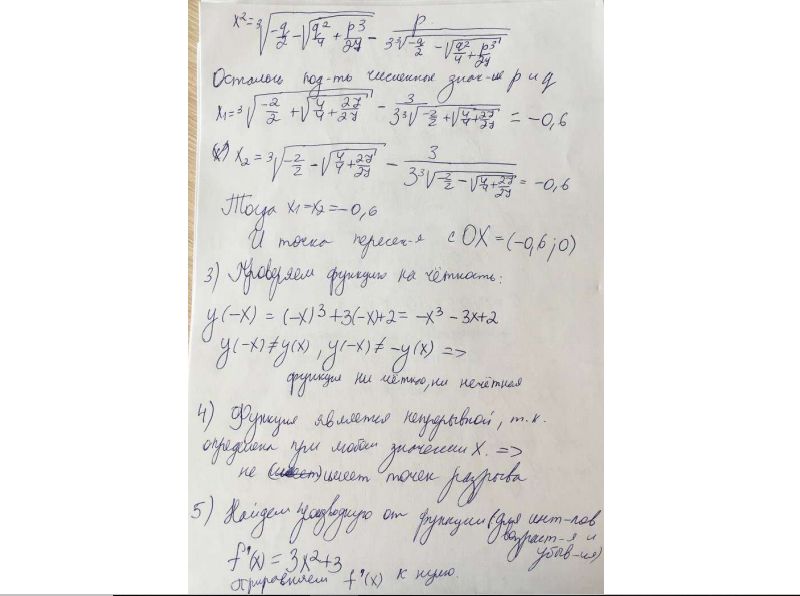 x²=³√(-q/2 - √(q²/4 + p3/2y)) - p/(3³√(-q/2 - √(q²/4 + p³/2y)))
Осталось под-ть численное знач-ие p и q
x₁=³√(-2/2 + √(4/4 + 27/2y)) - 3/(3³√(-2/2 + √(4/4 + 27/2y))) = -0,6
x₂ = ³√(-2/2 - √(4/4 + 27/2y)) - 3/(3³√(-2/2 - √(4/4 + 27/2y))) = -0,6
Тогда x₁=x₂=-0,6
И точка пересеч-я с OX = (-0,6;0)
3) Проверяем функцию на чётность:
y(-x) = (-x)³+3(-x)+2= -x³ - 3x+2
y(-x)≠y(x), y(-x)≠ -y(x) =>
функция ни чётная, ни нечётная
4) Функция является непрерывной, т.к.
определена при любом значении x. =>
не имеет точек разрыва
5) Найдем производную от функции (для инт-лов
возраст-я и
убыв-ия)
f'(x) = 3x²+3
Приравняем f'(x) к нулю.